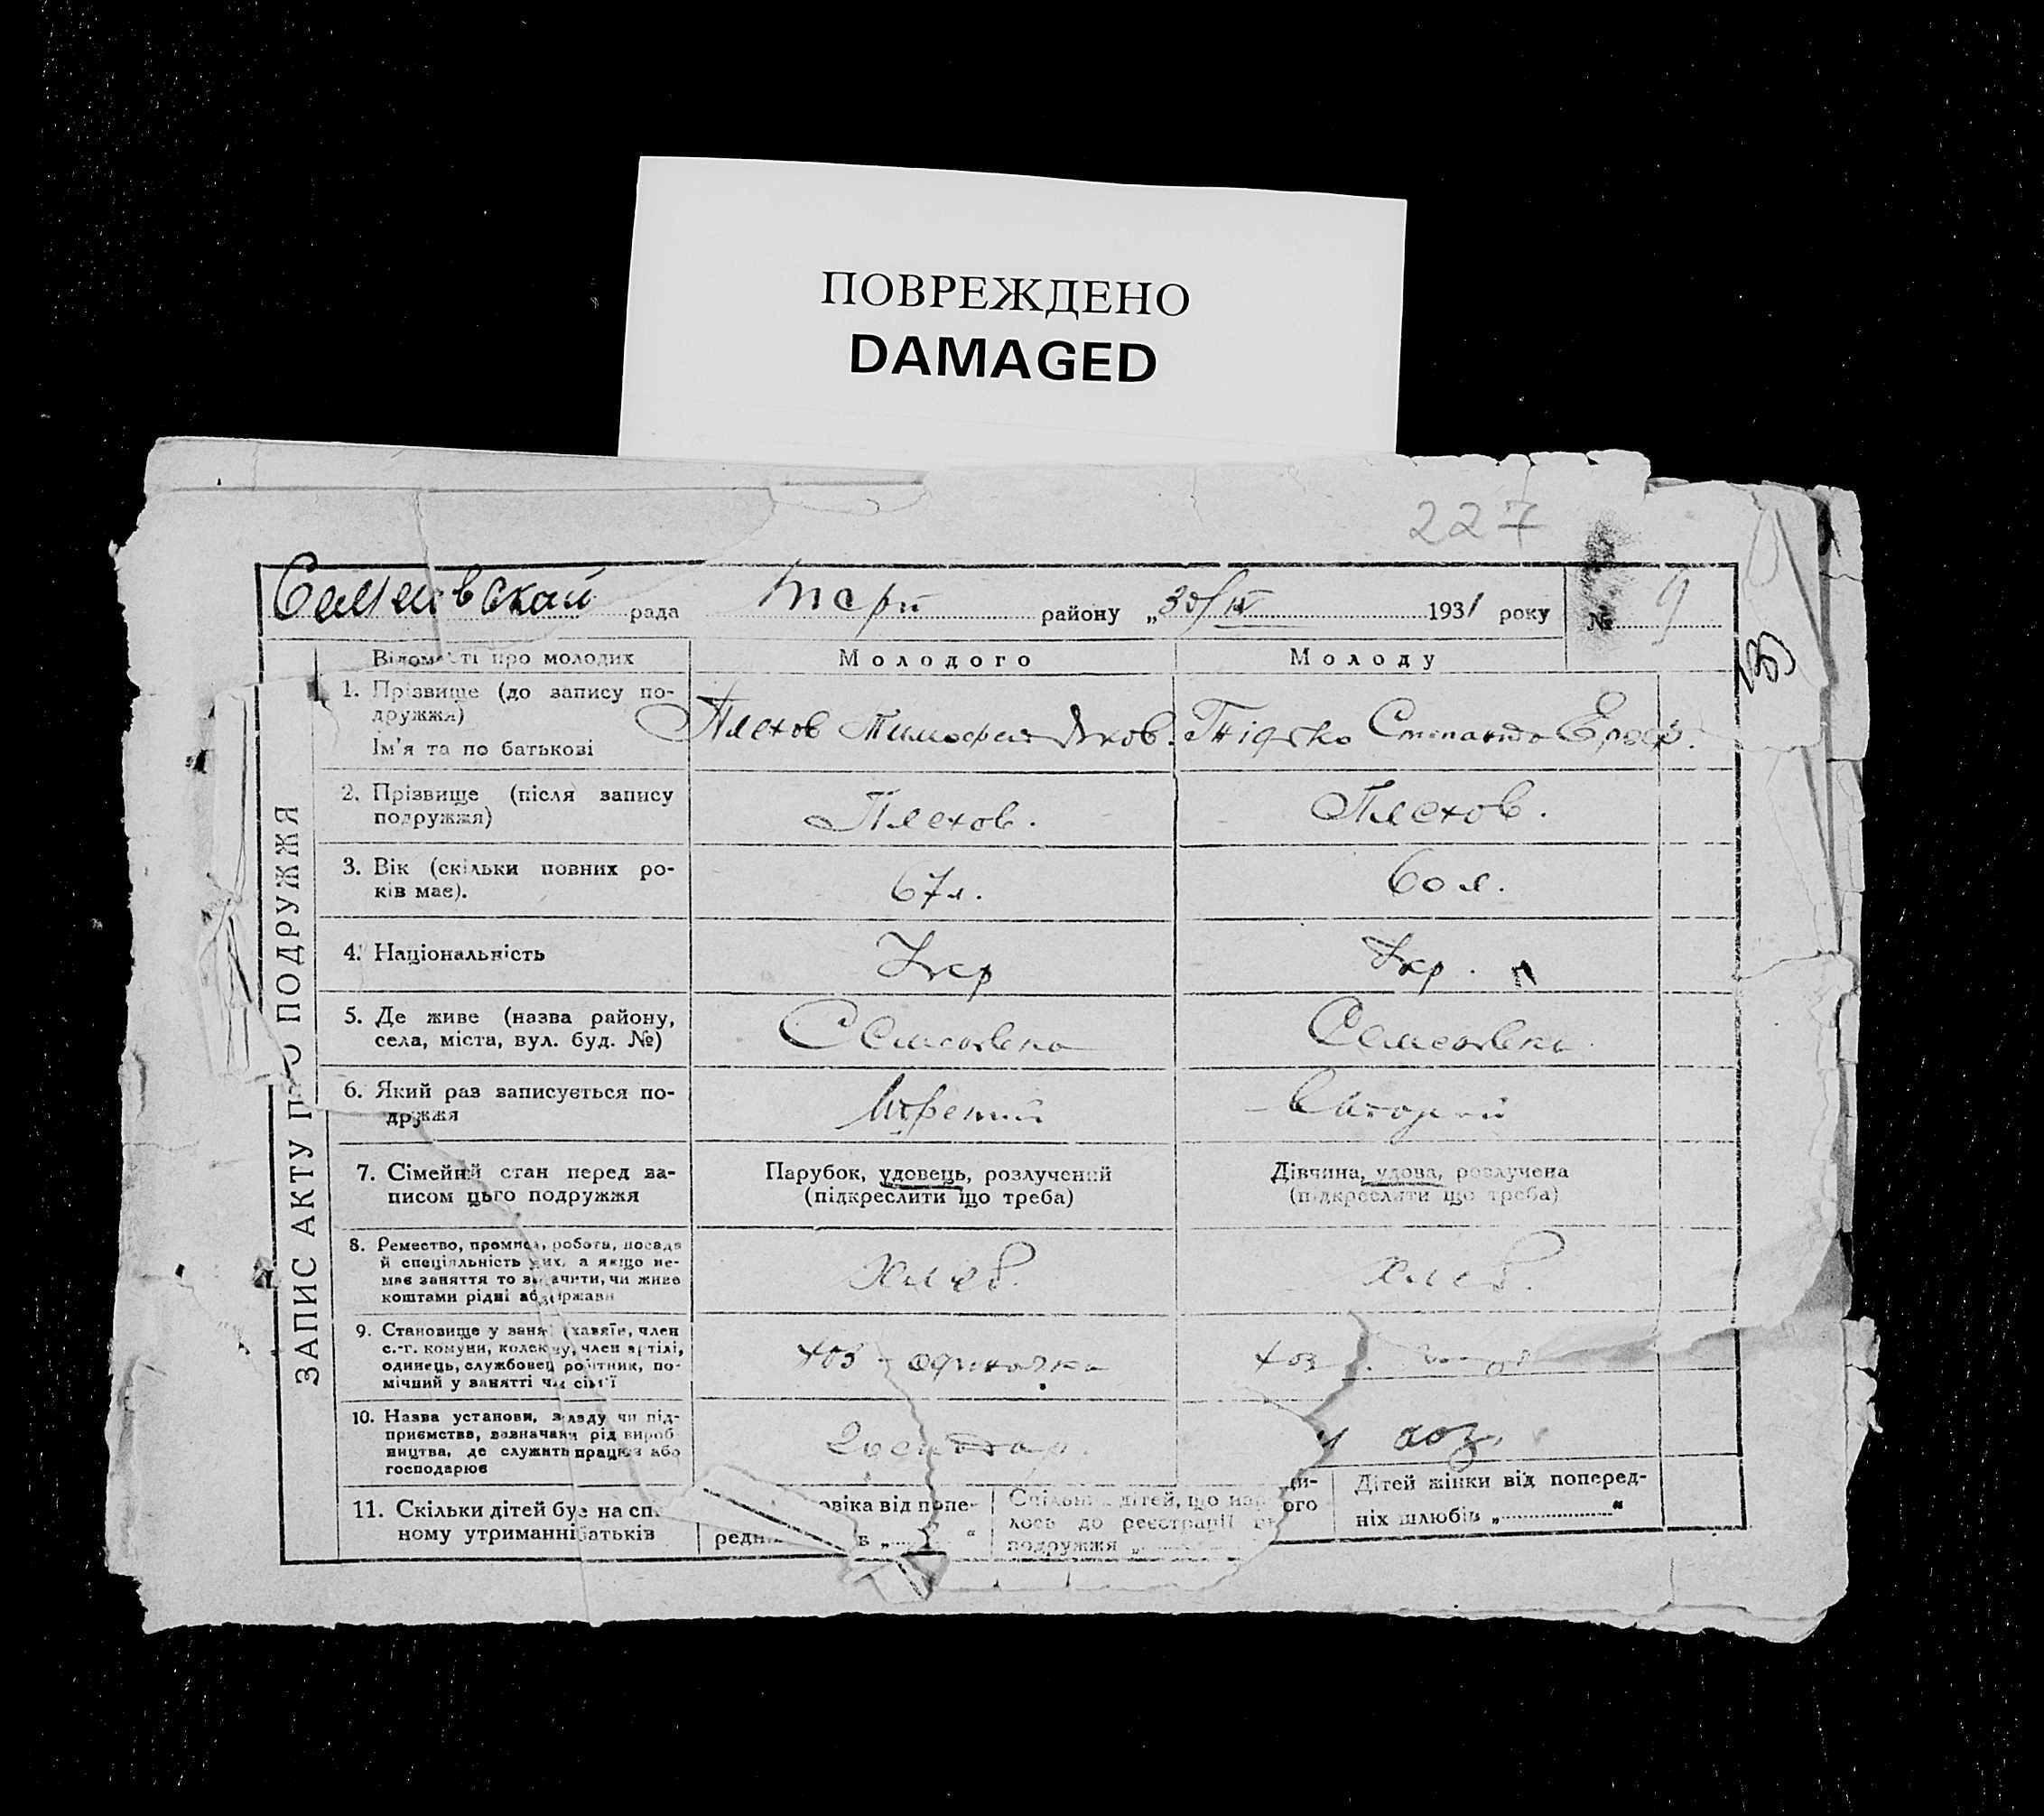 ПОВРЕЖДЕНО
DAMAGED
227
рада района району „30/IV 1931 року № 9
ЗАПИС АКТУ ПРО ПОДРУЖЖЯ
Відомості про молодих Молодого Молоду
1. Прізвище (до запису по-
дружжя)
Ім'я та по батькові
Плехов Тимофей Яков.
2. Прізвище (після запису
подружжя)
Плехов. Плехов.
3. Вік (скільки повних ро-
ків має).
67 л. 60 л.
4. Національність
Укр Укр.
5. Де живе (назва району,
села, міста, вул. буд. №)
6. Який раз записується по-
дружжя
третий
7. Сімейний стан перед за-
писом цього подружжя
Парубок, удовець, розлучений
(підкреслити що треба)
Дівчина, удова, розлучена
(підкреслити що треба)
8. Ремество, промисл, робота, посада
й спеціяльність їх, а якщо не-
має заняття то, чи живе
коштами рідні або держави
Хлеб. Хлеб.
9. Становище у занят (хазяїн, член
с.-г. комуни, колективу, член артілі,
одинець, службовец робітник, по-
мічний у занятті чи сім'ї
хоз - одиночка хоз
10. Назва установи, закладу чи під-
приємства, зазначаючи рід вироб-
ництва, де служить працює або
господарює
господар. хоз.
11. Скільки дітей буде на спі
ному утриманні батьків
овіка від попе-
редн в „ “
Спільних дітей, що народи-
лось до реєстрації цього
подружжя „
Дітей жінки від поперед-
ніх шлюбів „ “